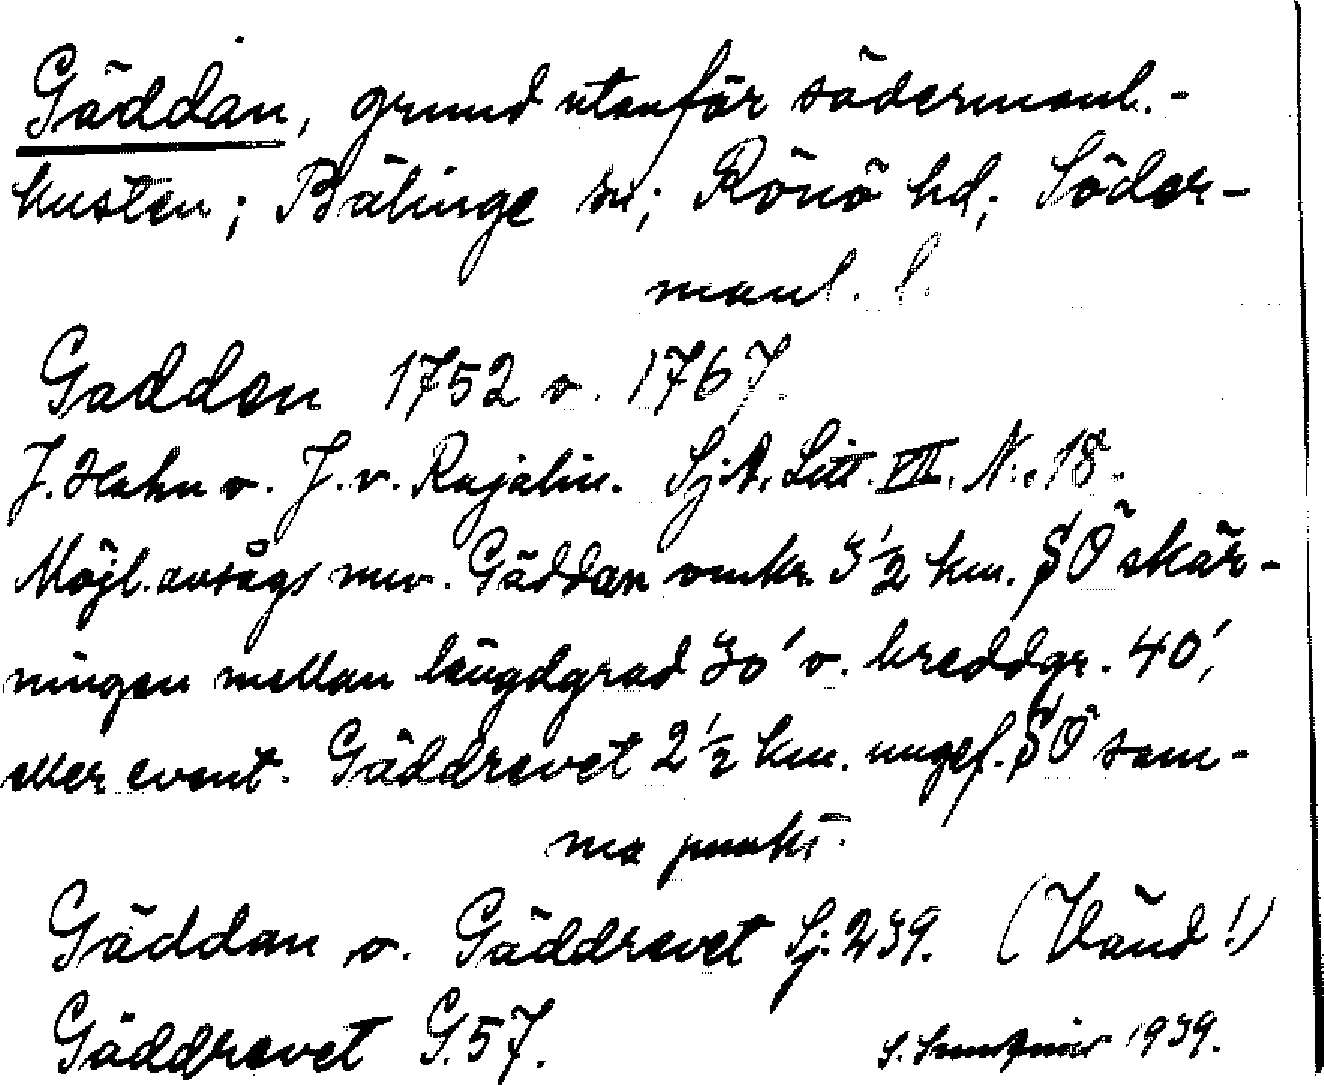 Gäddan, grund utanför södermanl.-
kusten; Bälinge sn; Rönö hd; Söder-
manl. l.
Gadden 1752 o. 1767.
J. Hahn o. J. v. Rajalin. Sj.A. Litt. VII. N:o 18.
Möjl. avsågs nuv. Gäddan omkr. 3 1/2 km. SÖ skär-
ningen mellan längdgrad 30' o. breddgr. 40',
eller event. Gäddrevet 2 1/2 km. ungef. SÖ sam-
ma punkt.
Gäddan o. Gäddrevet Sj. 239. (Vänd!)
Gäddrevet G. 57.
S. 1939.